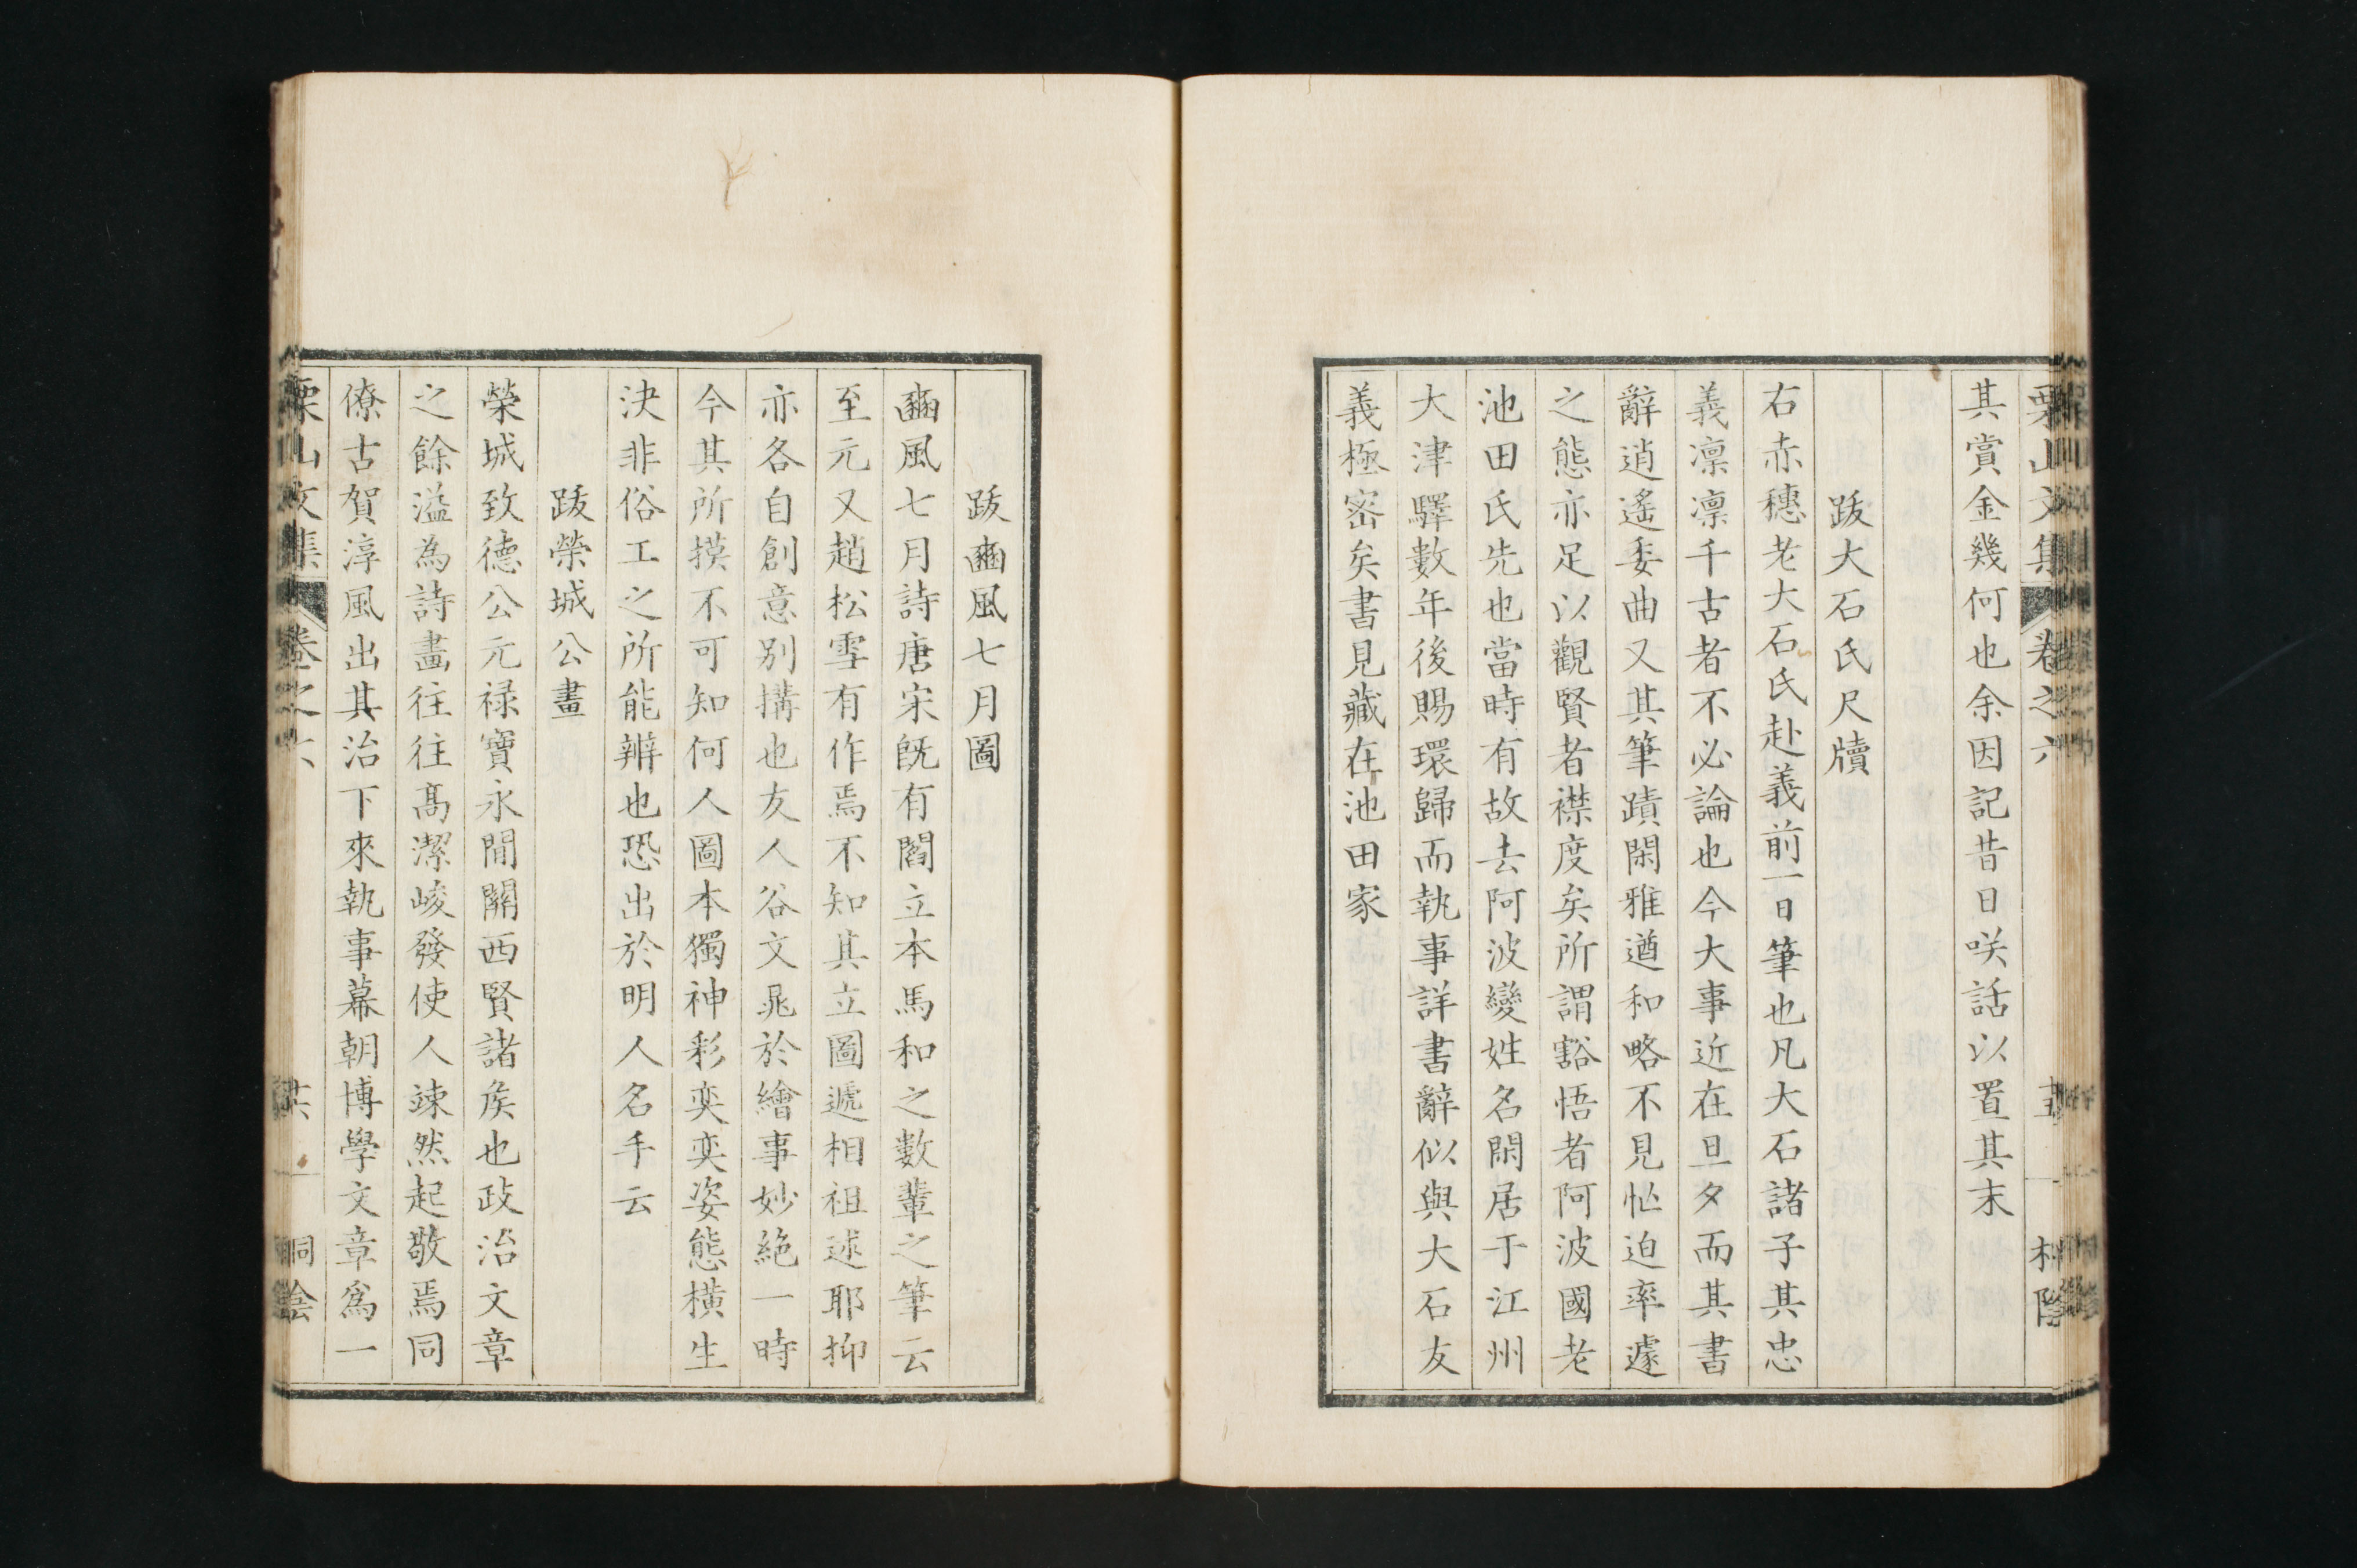 其賞金幾何也余因記昔日咲話以置其末
跋大石氏尺牘
右赤穗老大石氏赴義前一日筆也凡大石諸子其忠
義凛凛千古者不必論也今大事近在旦夕而其書
辭逍遙委曲又其筆蹟閑雅遒和略不見忙迫率遽
之態亦足以觀賢者襟度矣所謂豁悟者阿波國老
池田氏先也當時有故去阿波變姓名閑居于江州
大津驛數年後賜環歸而執事詳書辭似與大石友
義極密矣書見藏在池田家
跋豳風七月圖
豳風七月詩唐宋既有閻立本馬和之數輩之筆云
至元又趙松雪有作焉不知其立圖遞相祖述耶抑
亦各自創意別搆也友人谷文晁於繪事妙絶一時
今其所摸不可知何人圖本獨神彩奕奕姿態橫生
決非俗工之所能辨也恐出於明人名手云
跋榮城公畫
榮城致德公元禄寶永間關西賢諸矦也政治文章
之餘溢為詩畫往往髙潔峻發使人竦然起敬焉同
僚古賀淳風出其治下來執事幕朝博學文章爲一
栗山文集 卷之六